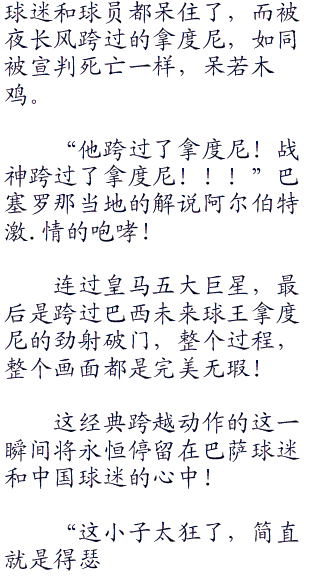 球迷和球员都呆住了，而被
夜长风跨过的拿度尼，如同
被宣判死亡一样，呆若木
鸡。
“他跨过了拿度尼！战
神跨过了拿度尼！！！”巴
塞罗那当地的解说阿尔伯特
激.情的咆哮！
连过皇马五大巨星，最
后是跨过巴西未来球王拿度
尼的劲射破门，整个过程，
整个画面都是完美无瑕！
这经典跨越动作的这一
瞬间将永恒停留在巴萨球迷
和中国球迷的心中！
“这小子太狂了，简直
就是得瑟